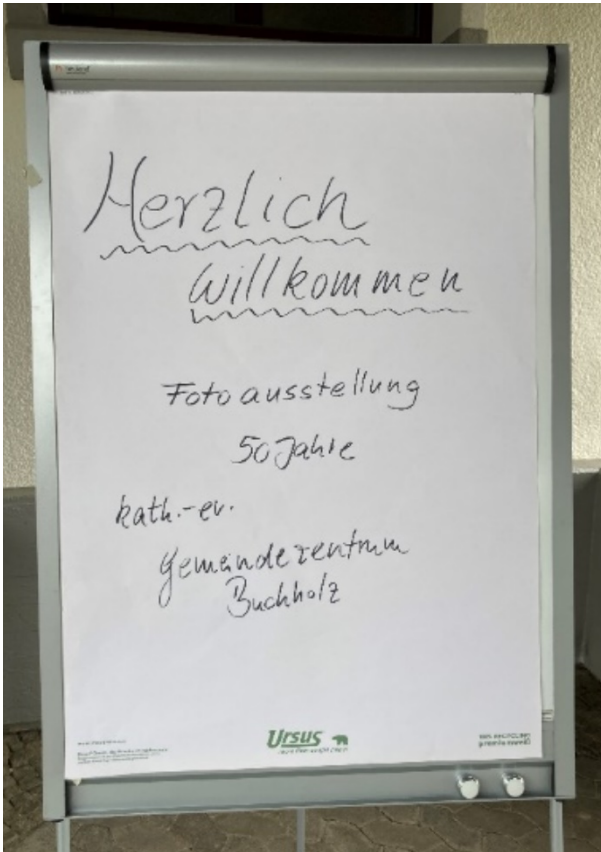 Herzlich
willkommen
Fotoausstellung
50 Jahre
kath.-ev.
Gemeindezentrum
Buchholz
Ursus